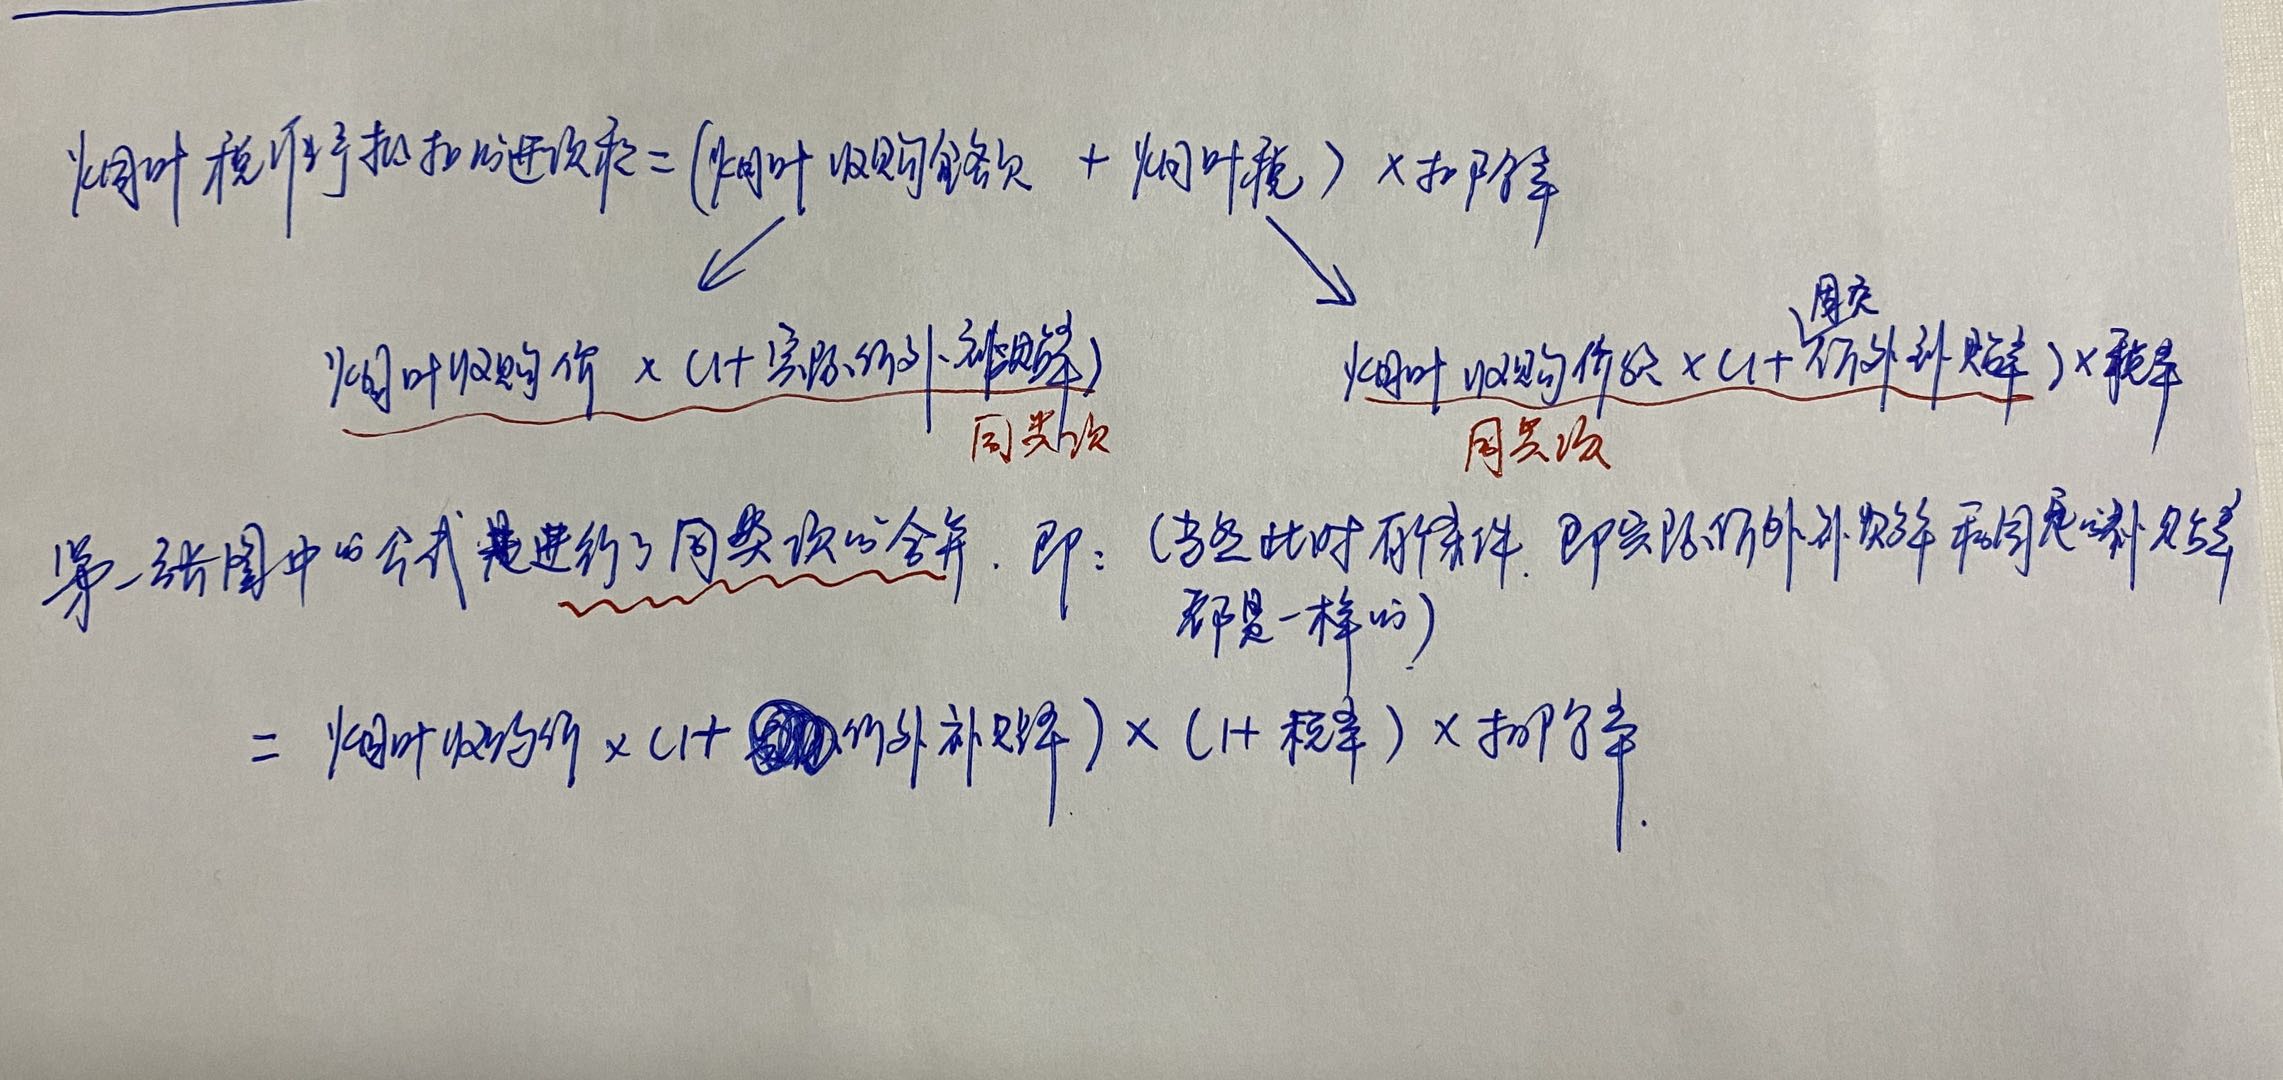 烟叶税准予抵扣的进项税=(烟叶收购金额 + 烟叶税) ×扣除率
烟叶收购价 ×(1+实际价外补贴率)
固定
烟叶收购价款×(1+价外补贴率)×税率
同类项
同类项
第一张图中的公式是进行了同类项的合并.即:(当然此时有个条件.即实际价外补贴率和固定的补贴率
都是一样的)
= 烟叶收购价×(1+价外补贴率)×(1+税率)×扣除率.